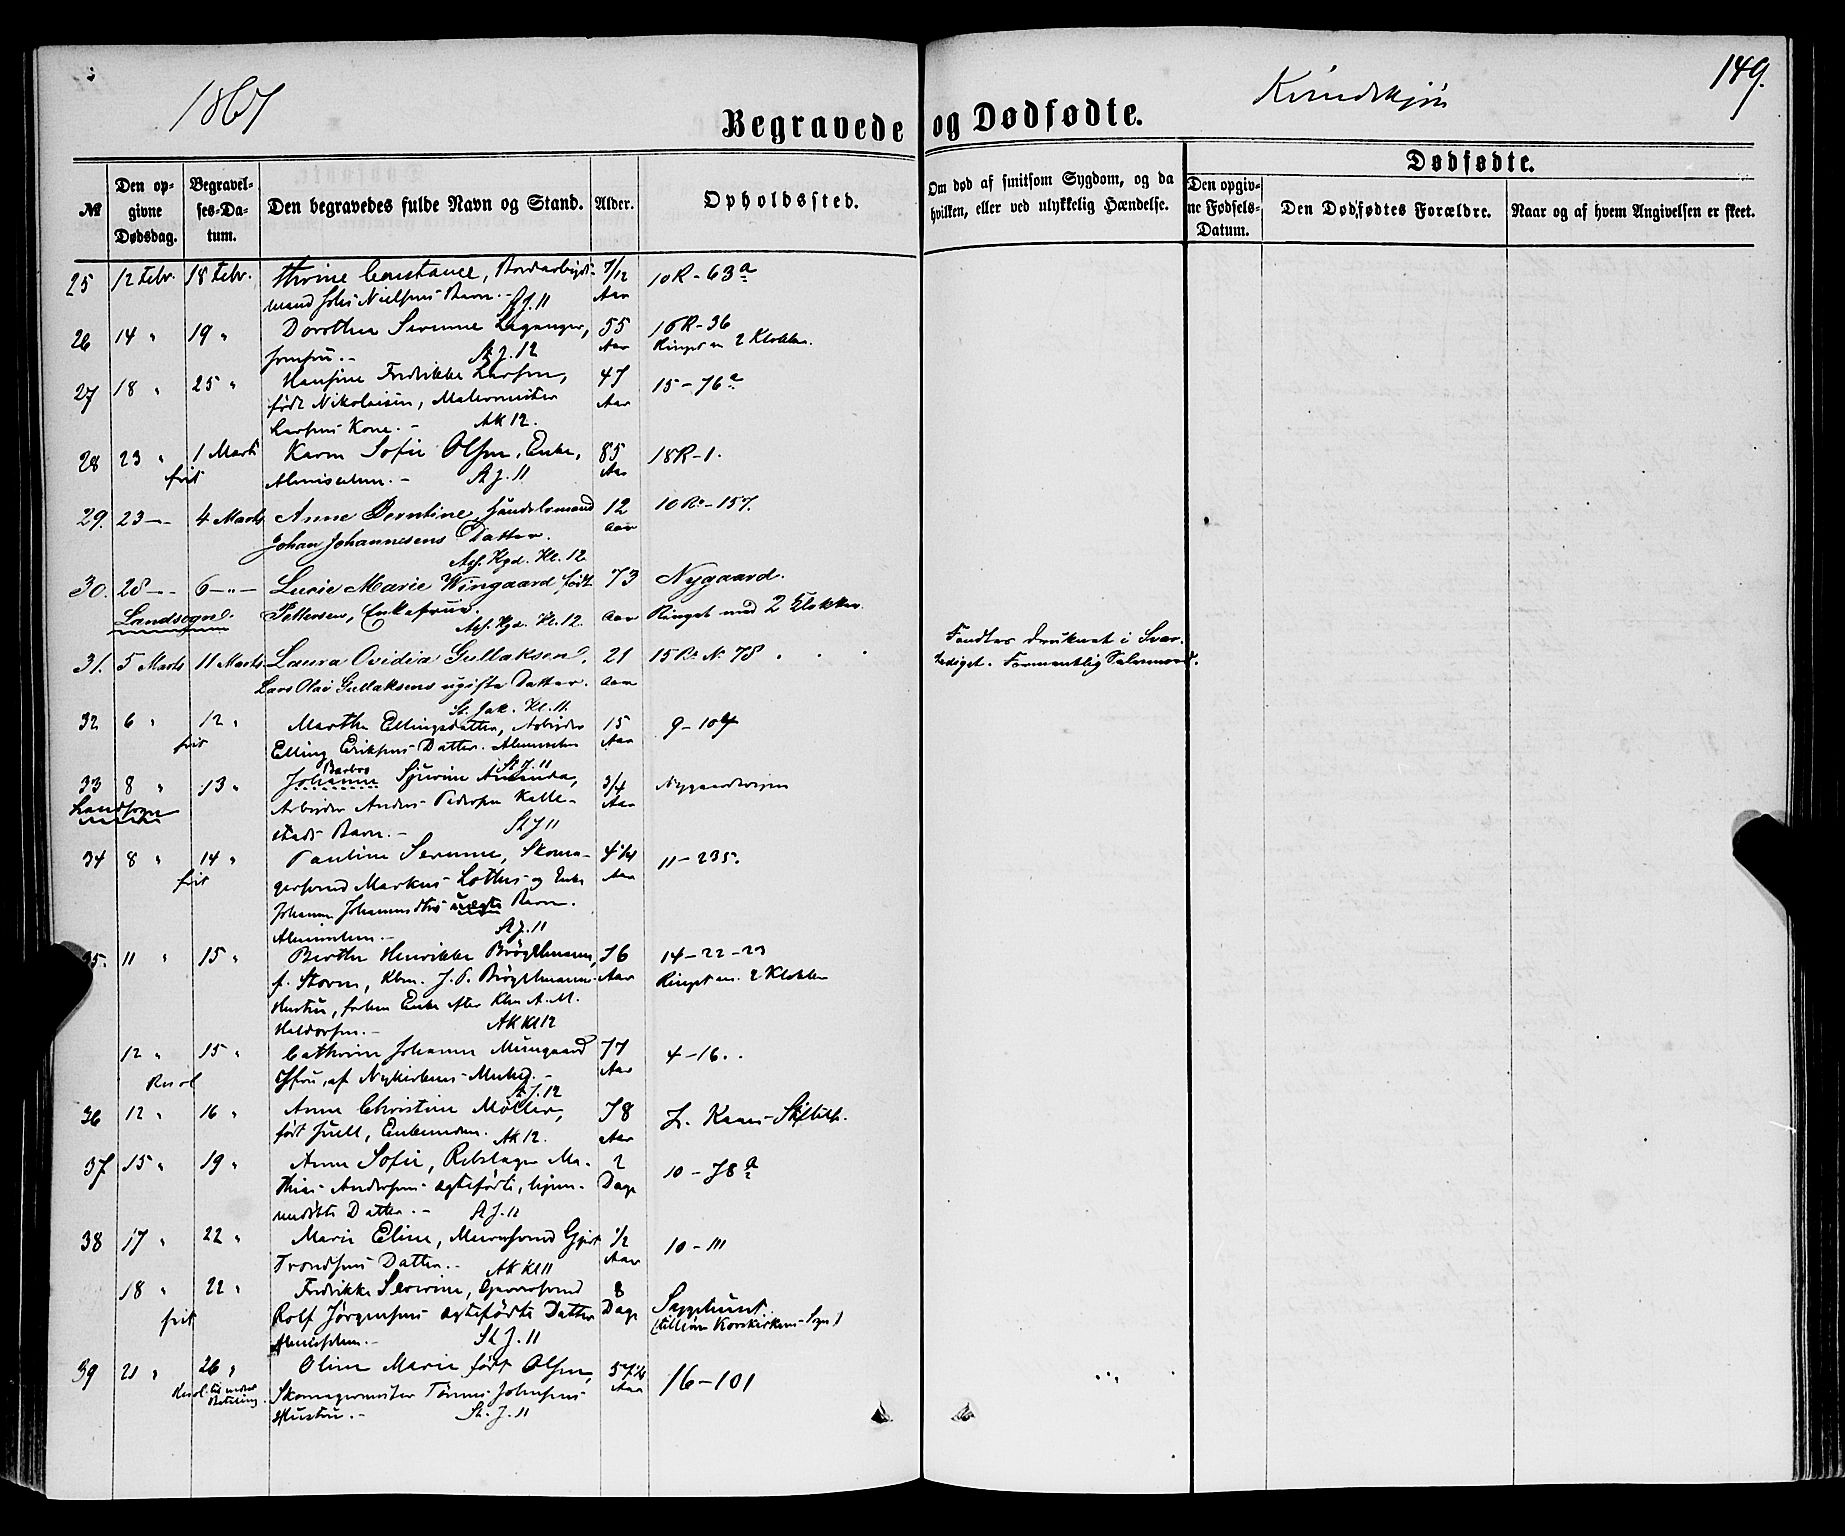 1867
Kvindekjøn
149.
Begravede og Dødfødte.
№
Den opgivne Dødsdag.
Begravelses-Datum.
Den begravedes fulde Navn og Stand.
Alder.
Opholdssted.
Om død af smitsom Sygdom, og da hvilken, eller ved ulykkelig Hændelse.
Dødfødte.
Den opgivne Fødsels-Datum.
Den Dødfødtes Forældre.
Naar og af hvem Angivelsen er skeet.
25 12 Febr. 18 Febr. Thrine Constance, 7/12 10R-63a
mand Johs Nielsens Barn.- St J. 11 Aar
26 14 " 19 " Dorothea Serenne Leganger, 55 16R-36
Jomfru.- St J. 12 Aar Ringet m 2 Klokker.
27 18 " 25 " Hansine Fredrikke Larsen, 47 15-76a
født Nikolaisen, Malermester Aar
Larsens Kone.- AK 12.
28 23 " 1 Marts Karen Sofie Olsen, Enke, 85 18R-1.
frit Almisselem.- St J. 11 Aar
29. 23 -"- 4 Marts Anne Berntine, Handelsmand 12 10 R.-157.
Johan Johannesens Datter. Aar
Ass. Kgd. Kl. 12.
30. 28 -"- 6 -"- Lucie Marie Wingaard født 73 Nygaard.
Landsogn. Pettersen, Enkefrue. Aar Ringet med 2 Klokker.
Ass. Kgd. Kl. 12.
31. 5 Marts 11 Marts Laura Ovidia Gullaksen, 21 15 R. N. 78 Fandtes druknet i Svar-
Lars Olai Gullaksens ugifte Datter. Aar tediget. Formentlig Selvmord.
St. Jak. Kl. 11.
32 6 " 12 " Marthe Ellingsdatter, Arbeider 15 9-104
frit Elling Eriksens Datter. Almisselem Aar
St J. 11
33 8 " 13 " Johanne Barbro Sjurine Amanda, 3/4 Nygaardsveien
Landsogn Arbeider Anders Pedersen Kalle- Aar
stads Barn.- St J 11
34 8 " 14 " Pauline Serenne, Skoma- 4 1/4 11-235.
frit gersvend Markus Lothes og Enke Aar
Johanne Johannesdtrs uægte Barn.
Almisselem.- St J. 11
35. 11 " 15 " Berthe Henrikke Brögelmann, 76 14-22-23
f. Storm, Kbm. J. P. Brögelmanns Aar Ringet m. 2 Klokker
Hustru, forhen Enke efter Kbm A. M.
Haldorsen.- AK Kl 12
12 " 15 " Cathrine Johanne Mungaard 77 4-16.
Jfru, af Nykirkens Menhed.- Aar
St J. 12
36 12 " 16 " Anne Christine Möller, 78 Z. Kaaes Stiftelse.
født Juell, Enkemadm. AK 12. Aar
37 15 " 19 " Anne Sofie, Rebslager Ma- 2 10-78a
thias Andersens ægtefödte, hjem- Dage
medøbte Datter.- St J. 11
38 17 " 22 " Marie Eline, Murersvend Gjert 1/2 10-111
Trondsens Datter.- AK Kl 11 Aar
18 " 22 " Fredrikke Severine, 8
frit Rolf Jørgensens ægtefødte Datter Dage
Almisselem.- St J. 11 Korskirkens Sogn)
39 21 " 26 " Oline Marie født Olsen, 57 1/2 16-101
Skomagermester Tønnes Johnsens Aar
Hustru.- St. J. 11